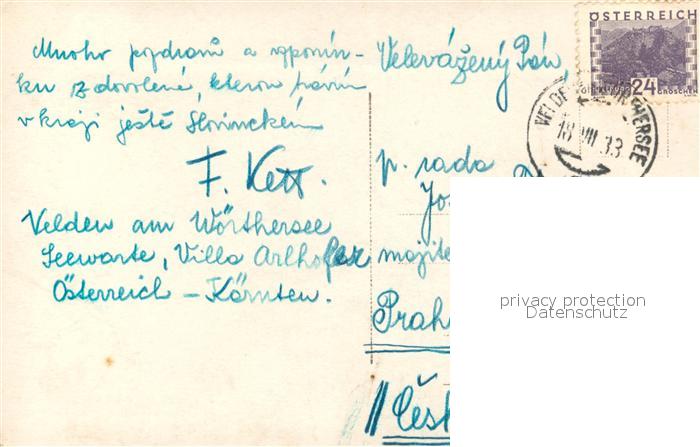 Mnoho pozdravů a vzpomín-
ku z dovolené, kterou trávím
v kraji ještě Slovinckém
F. Kett.
Velden am Wörthersee
Seewarte, Villa Arlhofer
Österreich – Kärnten.
Velevážený Pán,
p. rada
Jos
majite
Prah
Česk
ÖSTERREICH
24
GROSCHEN
18 VIII 33
privacy protection
Datenschutz